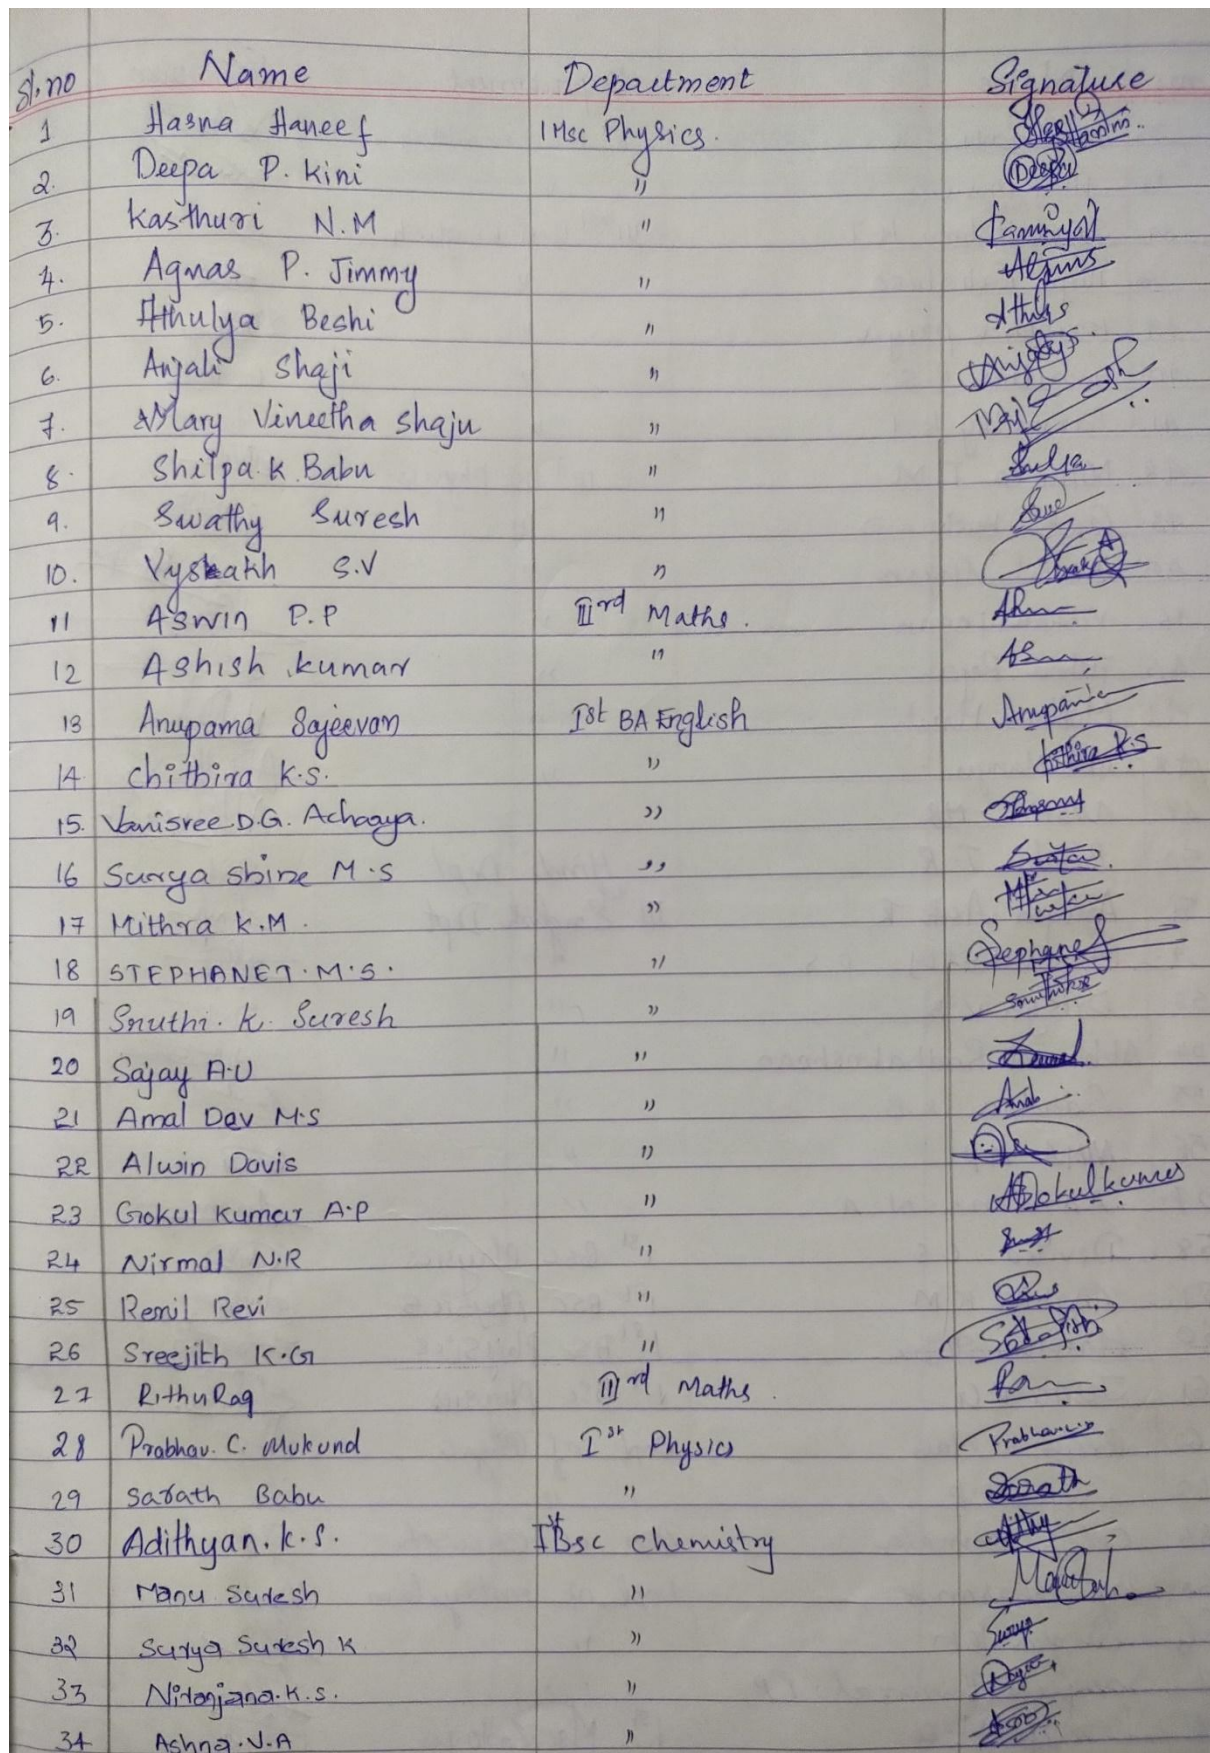 Sl.no Name Department Signature
1 Hasna Haneef I Msc Physics.
2. Deepa P. Kini " Deepa
3. Kasthuri N.M "
4. Agnas P. Jimmy "
5. Athulya Beshi "
6. Anjali Shaji "
7. Mary Vineetha Shaju "
8. Shilpa.K.Babu "
9. Swathy Suresh "
10. Vysakh S.V "
11 Aswin P.P IIIrd Maths.
12 Ashish kumar "
13 Anupama Sajeevan Ist BA English Anupama
14 Chithira K.S. " Chithira K.S
15. Vanisree D.G. Acharya. "
16 Surya Shine M.S "
17 Mithra K.M. "
18 STEPHANET.M.S. " Stephanet
19 Sruthi. K. Suresh "
20 Sajay A.U "
21 Amal Dev M.S "
22 Alwin Davis "
23 Gokul Kumar A.P " Gokulkumar
24 Nirmal N.R "
25 Renil Revi "
26 Sreejith K.G "
27 Rithu Rag IIIrd Maths.
28 Prabhav. C. Mukund Ist Physics
29 Sarath Babu " Sarath
30 Adithyan. K.S. Ist Bsc Chemistry
31 Manu Suresh "
32 Surya Suresh K " Surya
33 Niranjana.K.S. "
34 Ashna.V.A "